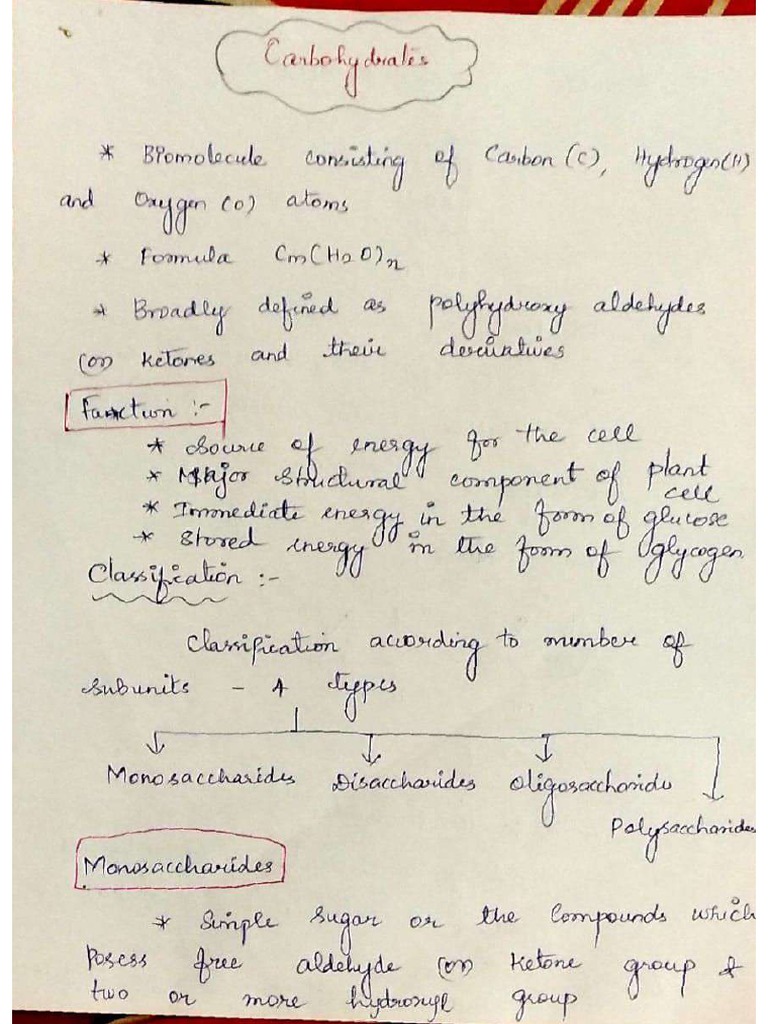 Carbohydrates
* Biomolecule consisting of Carbon (C), Hydrogen(H)
and Oxygen (O) atoms
* Formula Cm(H2O)n
* Broadly defined as polyhydroxy aldehydes
(or) ketones and their derivatives
Function :-
* Source of energy for the cell
* Major structural component of plant
cell
* Immediate energy in the form of glucose
* Stored energy in the form of glycogen
Classification :-
Classification according to number of
subunits - 4 types
Monosaccharides Disaccharides Oligosaccharides
Polysaccharides
Monosaccharides
* Simple sugar or the compounds which
Posess free aldehyde (or) ketone group &
two or more hydroxyl group